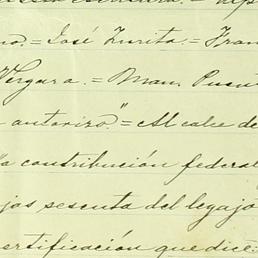 no.= José Zurita.= Fran
Vergara.= Man. Puen
autorizo."= Al calce de
"a contribución federal
jas sesenta del legajo
ertificación que dice: